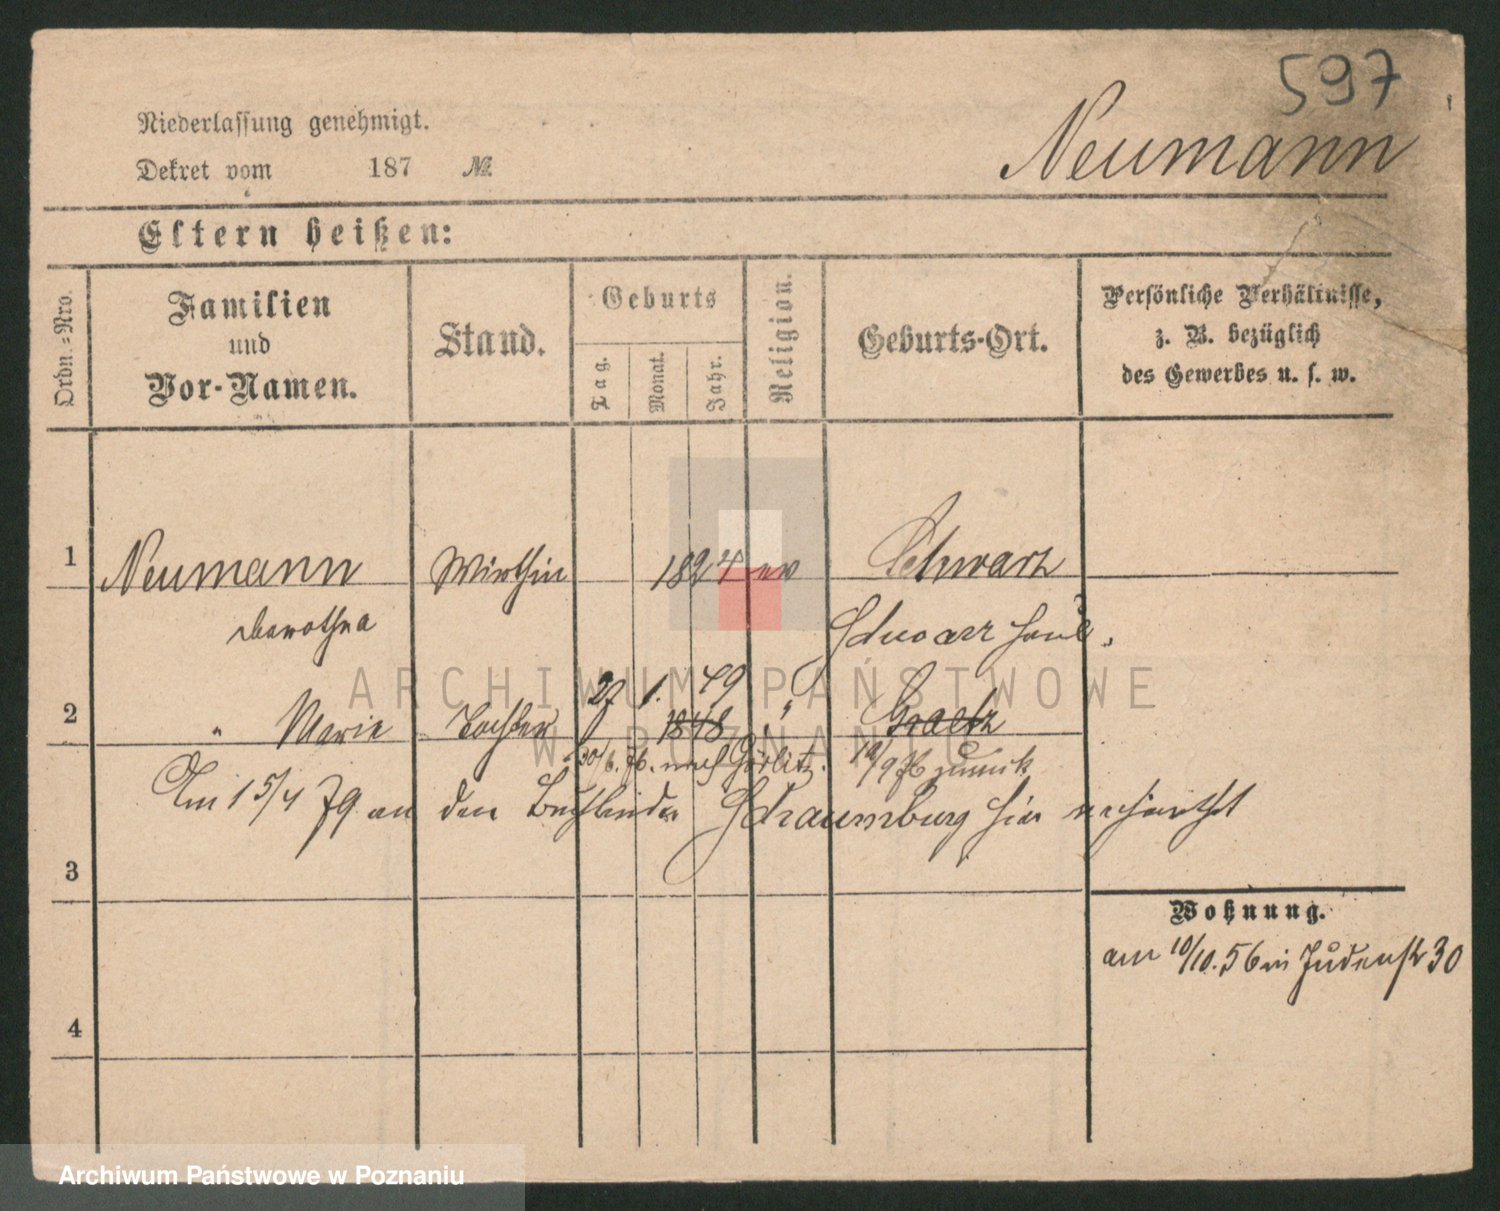 597
Niederlassung genehmigt.
Neumann
Dekret vom 187 №
Eltern heißen:
Ordn.=Nro.
Familien und Vor-Namen.
Stand.
Geburts
Tag.
Monat.
Jahr.
Religion.
Geburts-Ort.
Persönliche Verhältnisse,
z. B. bezüglich
des Gewerbes u. s. w.
1 Neumann Wirthin 1824 ev Schwarz
Dorothea
2 " Marie Tochter 27 1. 49 1848 " Graetz
30/6. 76. nach Görlitz. 19/9 76 zurück
Am 15/4 79 an den Buchbinder Schaumburg hier
3
Wohnung.
am 10/10. 56 in Judenstr 30
4
ARCHIWUM PAŃSTWOWE
W POZNANIU
Archiwum Państwowe w Poznaniu